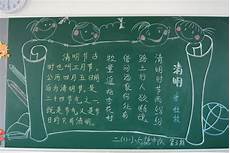 清明
清明时节雨纷纷
路上行人欲断魂
借问酒家何处有
牧童遥指杏花村
清明节古
时也叫三月节，
公历四月五日前
后为清明节，是二
十四节气之一，
既是节气又是节
日的只有清明。